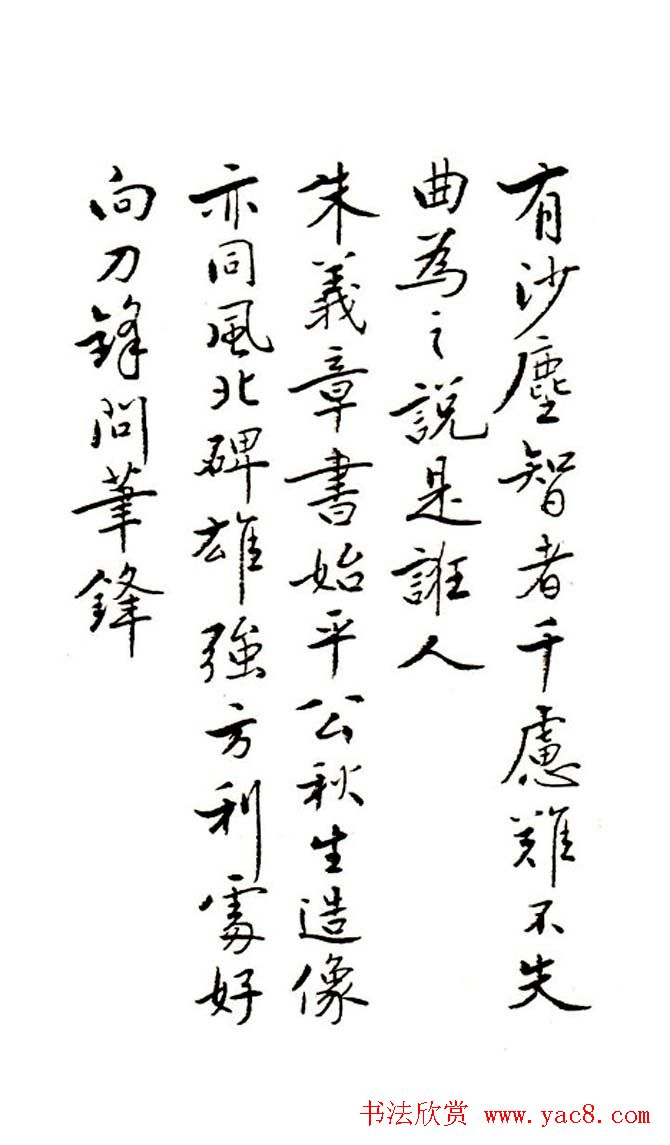 有沙塵智者千慮難不失
曲為之說是誑人
朱義章書始平公秋生造像
亦同風北碑雄強方利處好
向刀鋒問筆鋒
书法欣赏 www.yac8.com